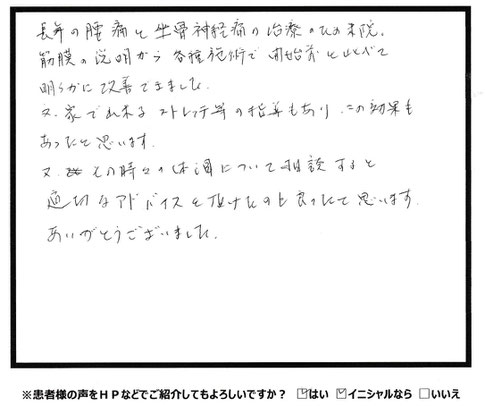 長年の腰痛と坐骨神経痛の治療のため来院。
筋膜の説明から各種施術で開始前と比べて
明らかに改善できました。
又、家で出来るストレッチ等の指導もあり、この効果も
あったと思います。
又、その時々の体調について相談すると
適切なアドバイスを頂けたのも良かったと思います。
ありがとうございました。
※患者様の声をＨＰなどでご紹介してもよろしいですか？ ☑はい ☑イニシャルなら □いいえ